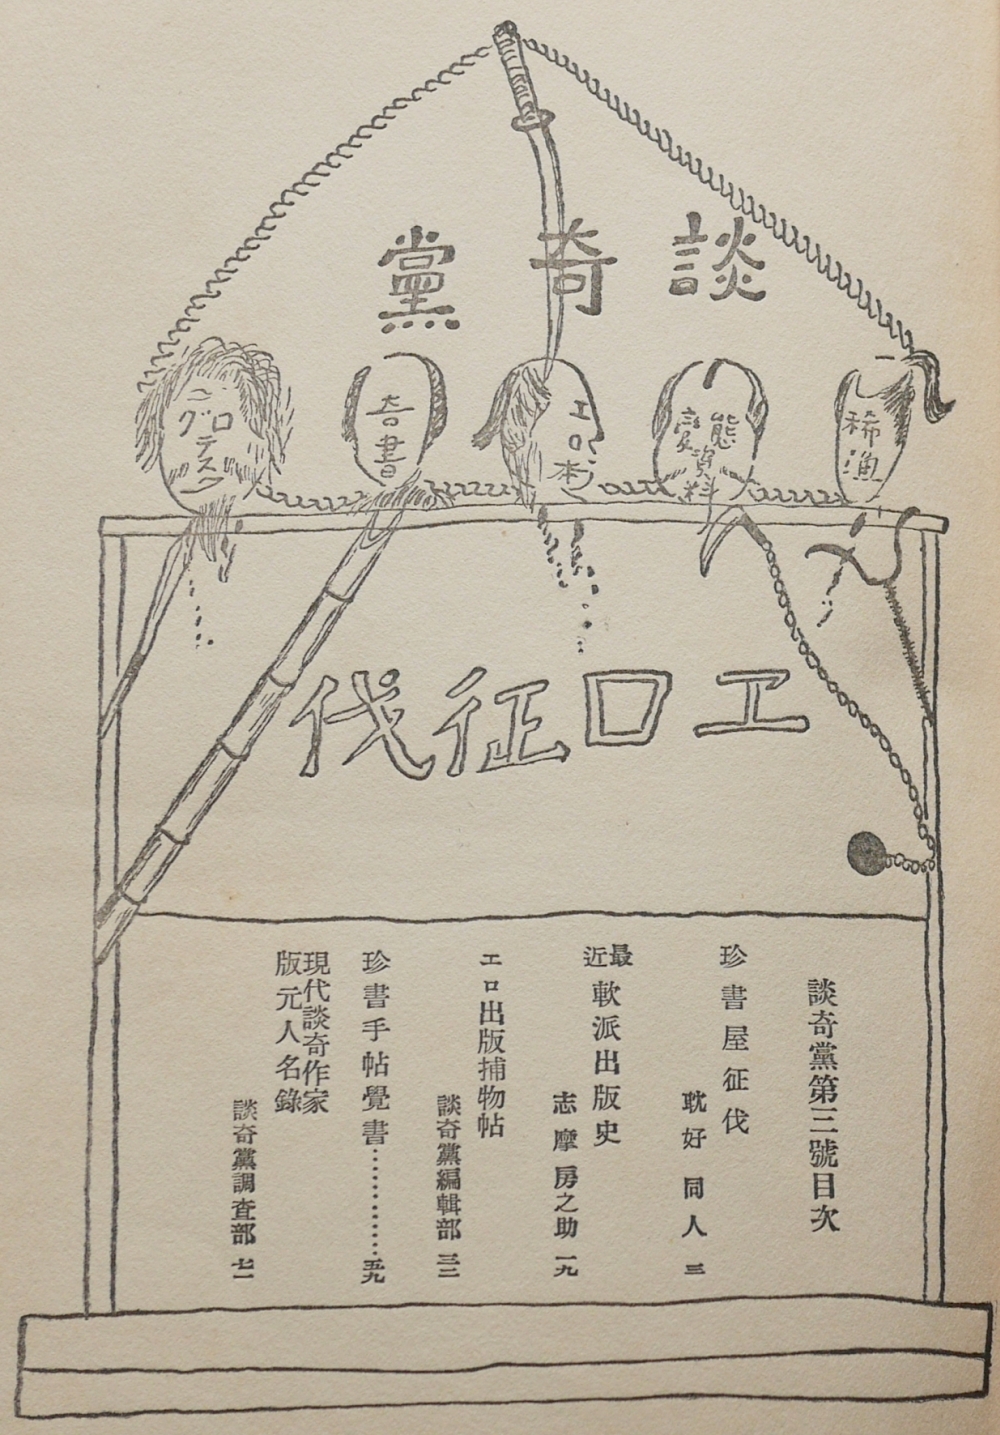 談奇黨
稀漁
変態資料
エロ本
奇書
グロテスク
エロ征伐
談奇黨第三號目次
珍書屋征伐
耽好同人 三
最近軟派出版史
志摩房之助 一九
エロ出版捕物帖
談奇黨編輯部 三二
珍書手帖覺書…………五九
現代談奇作家
版元人名錄
談奇黨調査部 七一